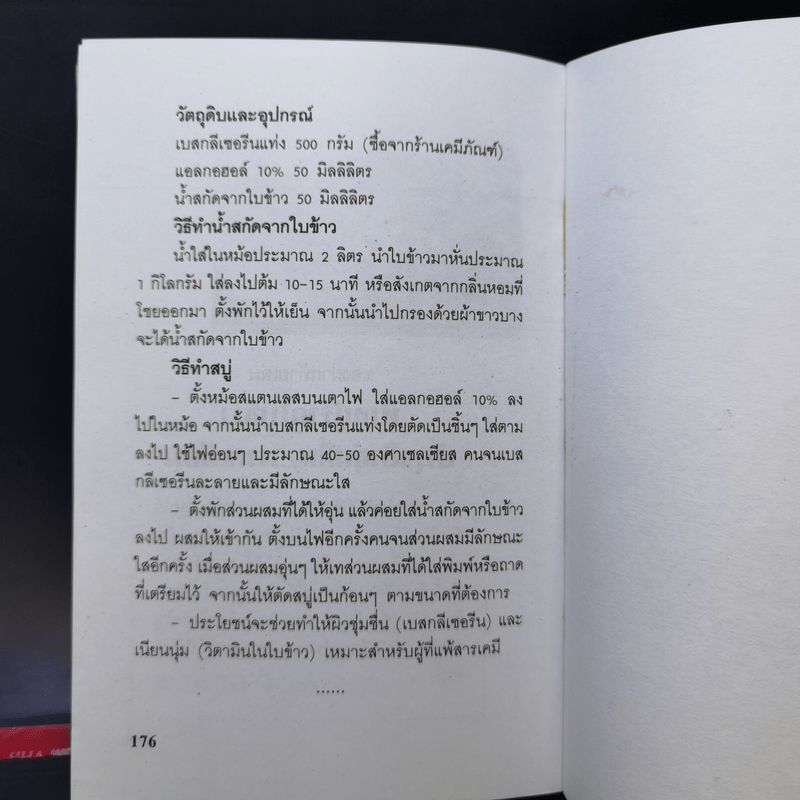 วัตถุดิบและอุปกรณ์
เบสกลีเซอรีนแท่ง 500 กรัม (ซื้อจากร้านเคมีภัณฑ์)
แอลกอฮอล์ 10% 50 มิลลิลิตร
น้ำสกัดจากใบข้าว 50 มิลลิลิตร
วิธีทำน้ำสกัดจากใบข้าว
น้ำใส่ในหม้อประมาณ 2 ลิตร นำใบข้าวมาหั่นประมาณ
1 กิโลกรัม ใส่ลงไปต้ม 10-15 นาที หรือสังเกตจากกลิ่นหอมที่
โชยออกมา ตั้งพักไว้ให้เย็น จากนั้นนำไปกรองด้วยผ้าขาวบาง
จะได้น้ำสกัดจากใบข้าว
วิธีทำสบู่
- ตั้งหม้อสแตนเลสบนเตาไฟ ใส่แอลกอฮอล์ 10% ลง
ไปในหม้อ จากนั้นนำเบสกลีเซอรีนแท่งโดยตัดเป็นชิ้นๆ ใส่ตาม
ลงไป ใช้ไฟอ่อนๆ ประมาณ 40-50 องศาเซลเซียส คนจนเบส
กลีเซอรีนละลายและมีลักษณะใส
- ตั้งพักส่วนผสมที่ได้ให้อุ่น แล้วค่อยใส่น้ำสกัดจากใบข้าว
ลงไป ผสมให้เข้ากัน ตั้งบนไฟอีกครั้งคนจนส่วนผสมมีลักษณะ
ใสอีกครั้ง เมื่อส่วนผสมอุ่นๆ ให้เทส่วนผสมที่ได้ใส่พิมพ์หรือถาด
ที่เตรียมไว้ จากนั้นให้ตัดสบู่เป็นก้อนๆ ตามขนาดที่ต้องการ
- ประโยชน์จะช่วยทำให้ผิวชุ่มชื่น (เบสกลีเซอรีน) และ
เนียนนุ่ม (วิตามินในใบข้าว) เหมาะสำหรับผู้ที่แพ้สารเคมี
......
176